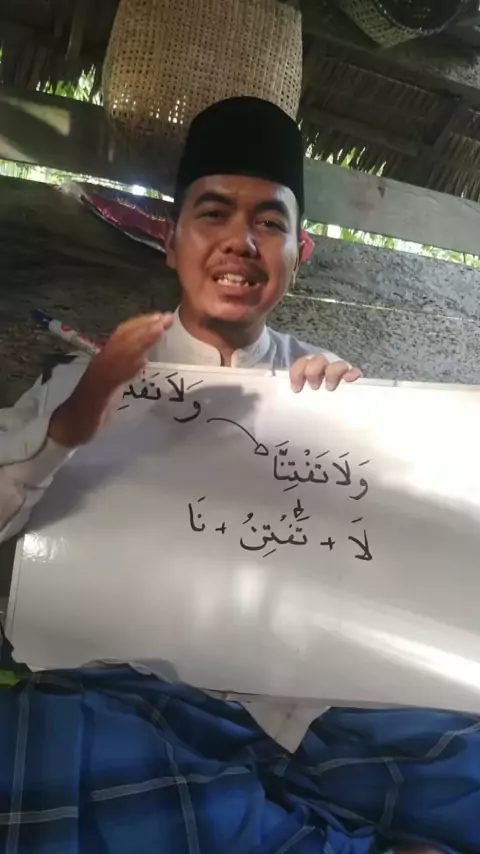 وَلاَ
وَلاَ تَفْتِنَّا
لاَ + تَفْتِنُ + نَا